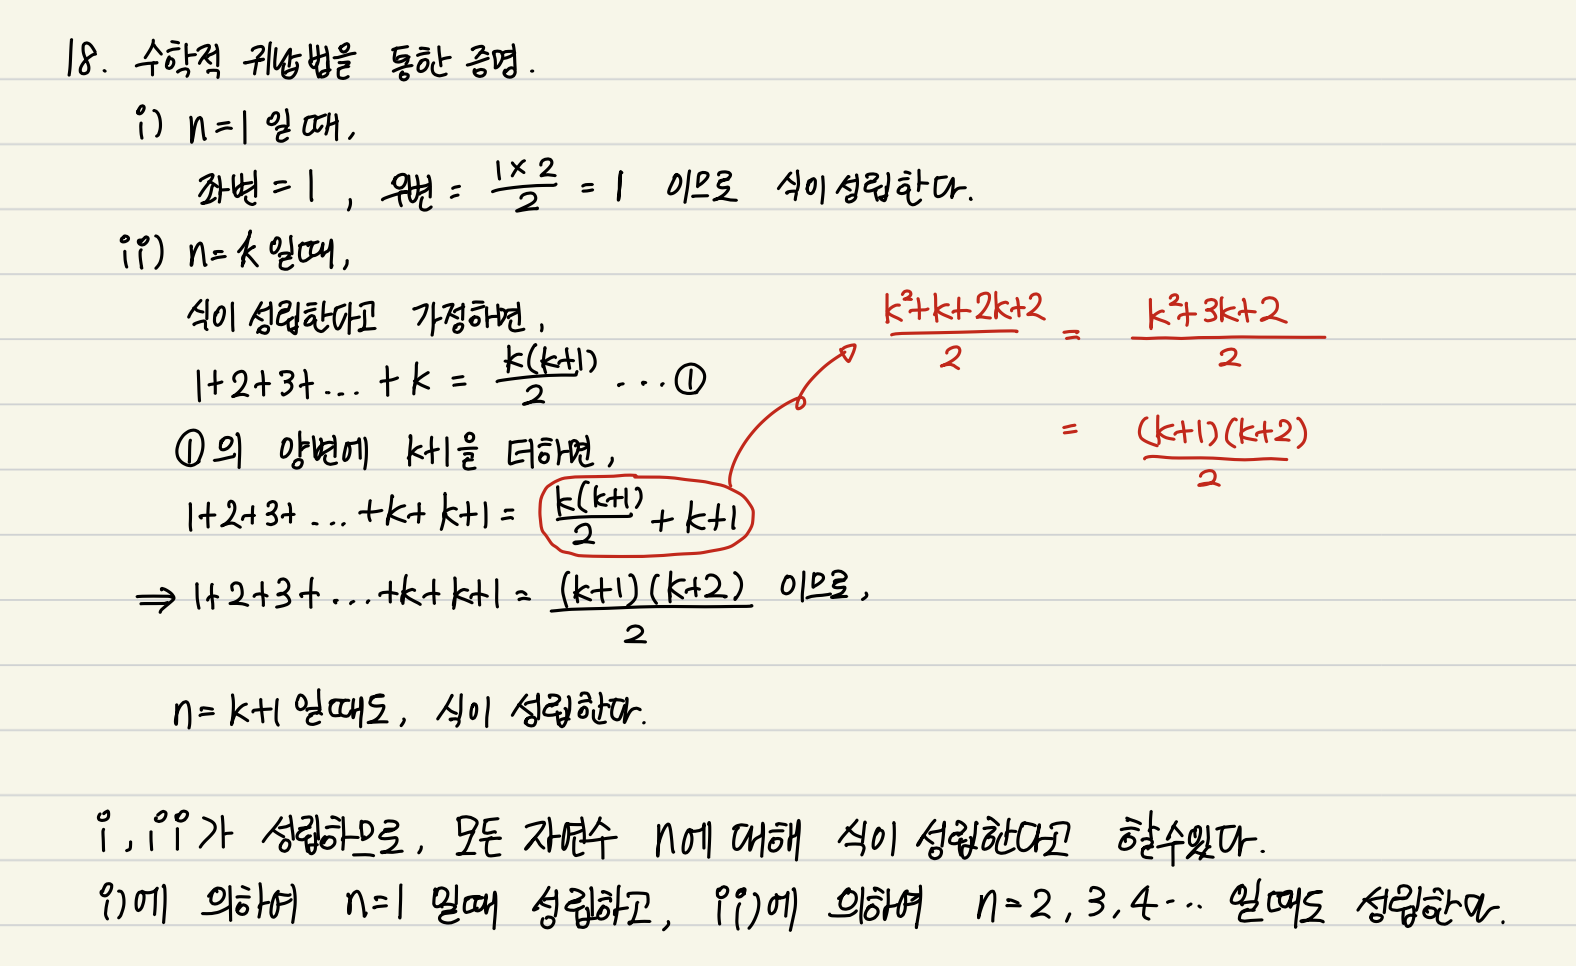 18. 수학적 귀납법을 통한 증명.
i) n=1 일 때,
좌변 = 1 , 우변 = \frac{1×2}{2} = 1 이므로 식이 성립한다.
ii) n=k 일때,
식이 성립한다고 가정하면,
1+2+3+... +k = \frac{k(k+1)}{2} ...①
①의 양변에 k+1을 더하면,
1+2+3+ ... +k+k+1 = \frac{k(k+1)}{2} + k+1
\frac{k²+k+2k+2}{2} = \frac{k²+3k+2}{2}
= \frac{(k+1)(k+2)}{2}
⇒ 1+2+3+...+k+k+1 = \frac{(k+1)(k+2)}{2} 이므로,
n=k+1 일때도, 식이 성립한다.
i, ii가 성립하므로, 모든 자연수 n에 대해 식이 성립한다고 할수있다.
i)에 의하여 n=1 일때 성립하고, ii)에 의하여 n=2,3,4... 일때도 성립한다.